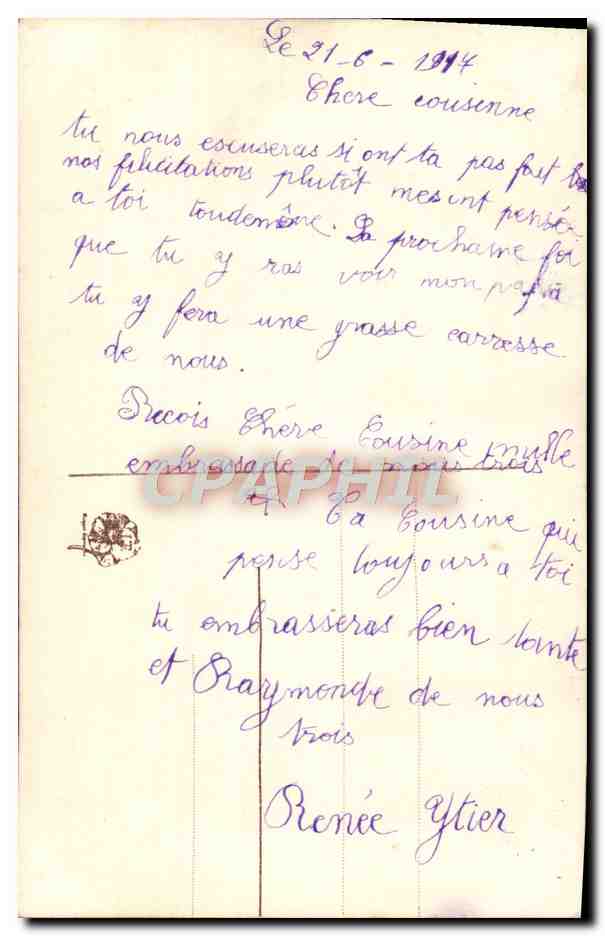 Le 21-6-1917
Chère cousinne
tu nous escuseras si ont ta pas fait
nos felicitations plutôt mes ont pensée
a toi toudemême. La prochaine foi
que tu y ras voir mon papa
tu y fera une grasse carresse
de nous.
Recois Chére Cousine mille
embrassade de nous trois
CPAPHIL
Ta Cousine qui
pense toujours a toi
tu embrasseras bien tante
et Raymonde de nous
trois
Renée Ytier